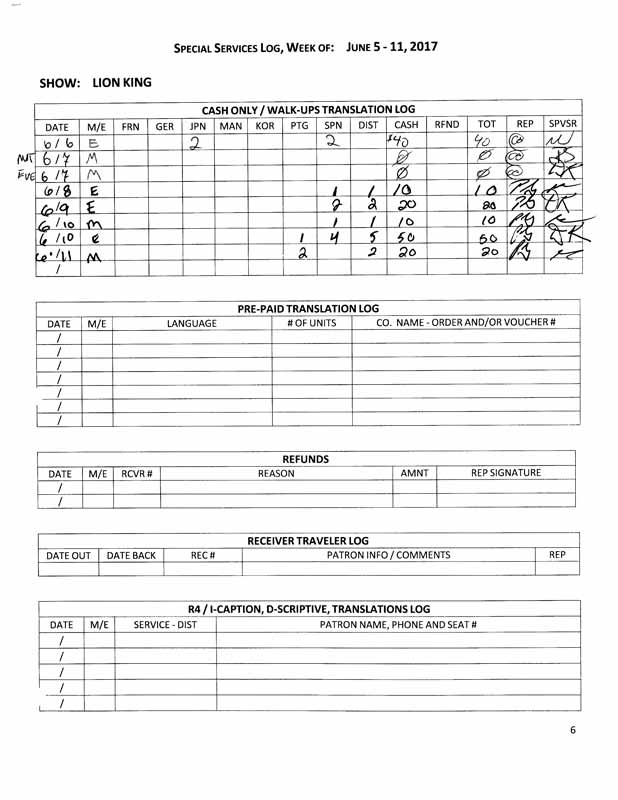 SPECIAL SERVICES LOG, WEEK OF: JUNE 5 - 11, 2017
SHOW: LION KING
CASH ONLY / WALK-UPS TRANSLATION LOG
DATE M/E FRN GER JPN MAN KOR PTG SPN DIST CASH RFND TOT REP SPVSR
6/6 E 2 2 $40 40
6/7 M 0 0
EVE 6/7 M 0 0
6/8 E 1 1 10 10
6/9 E 2 2 20 20
6/10 M 1 1 10 10
6/10 E 1 4 5 50 50
6/11 M 2 2 20 20
/
PRE-PAID TRANSLATION LOG
DATE M/E LANGUAGE # OF UNITS CO. NAME - ORDER AND/OR VOUCHER #
/
/
/
/
/
/
/
REFUNDS
DATE M/E RCVR # REASON AMNT REP SIGNATURE
/
/
RECEIVER TRAVELER LOG
DATE OUT DATE BACK REC # PATRON INFO / COMMENTS REP
R4 / I-CAPTION, D-SCRIPTIVE, TRANSLATIONS LOG
DATE M/E SERVICE - DIST PATRON NAME, PHONE AND SEAT #
/
/
/
/
/
6